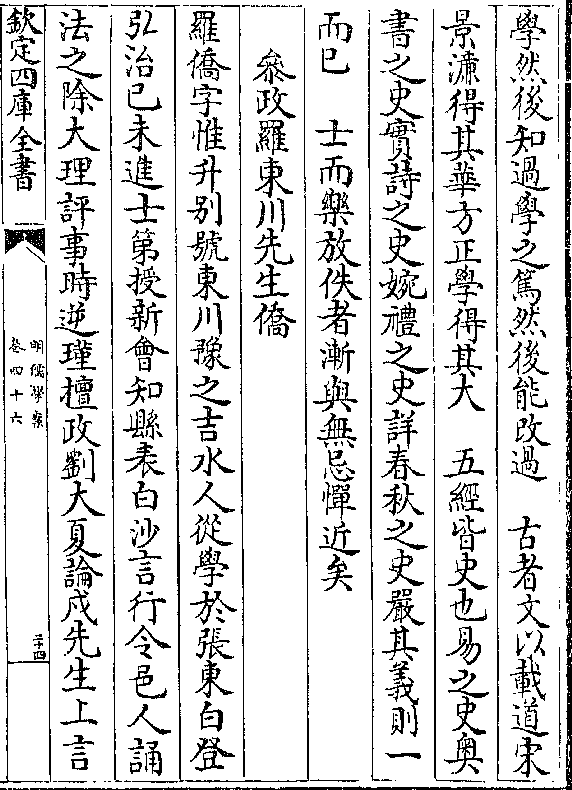 學然後知過學之篤然後能改過　古者文以載道宋
景濂得其華方正學得其大　五經皆史也易之史奧
書之史實詩之史婉禮之史詳春秋之史嚴其義則一
而已　士而樂放佚者漸與無忌憚近矣
叅政羅東川先生僑
羅僑字惟升别號東川豫之吉水人從學於張東白登
弘治己未進士第授新會知縣表白沙言行令邑人誦
法之除大理評事時逆瑾擅政劉大夏論戍先生上言
欽定四庫全書
明儒學案
卷四十六
二十四